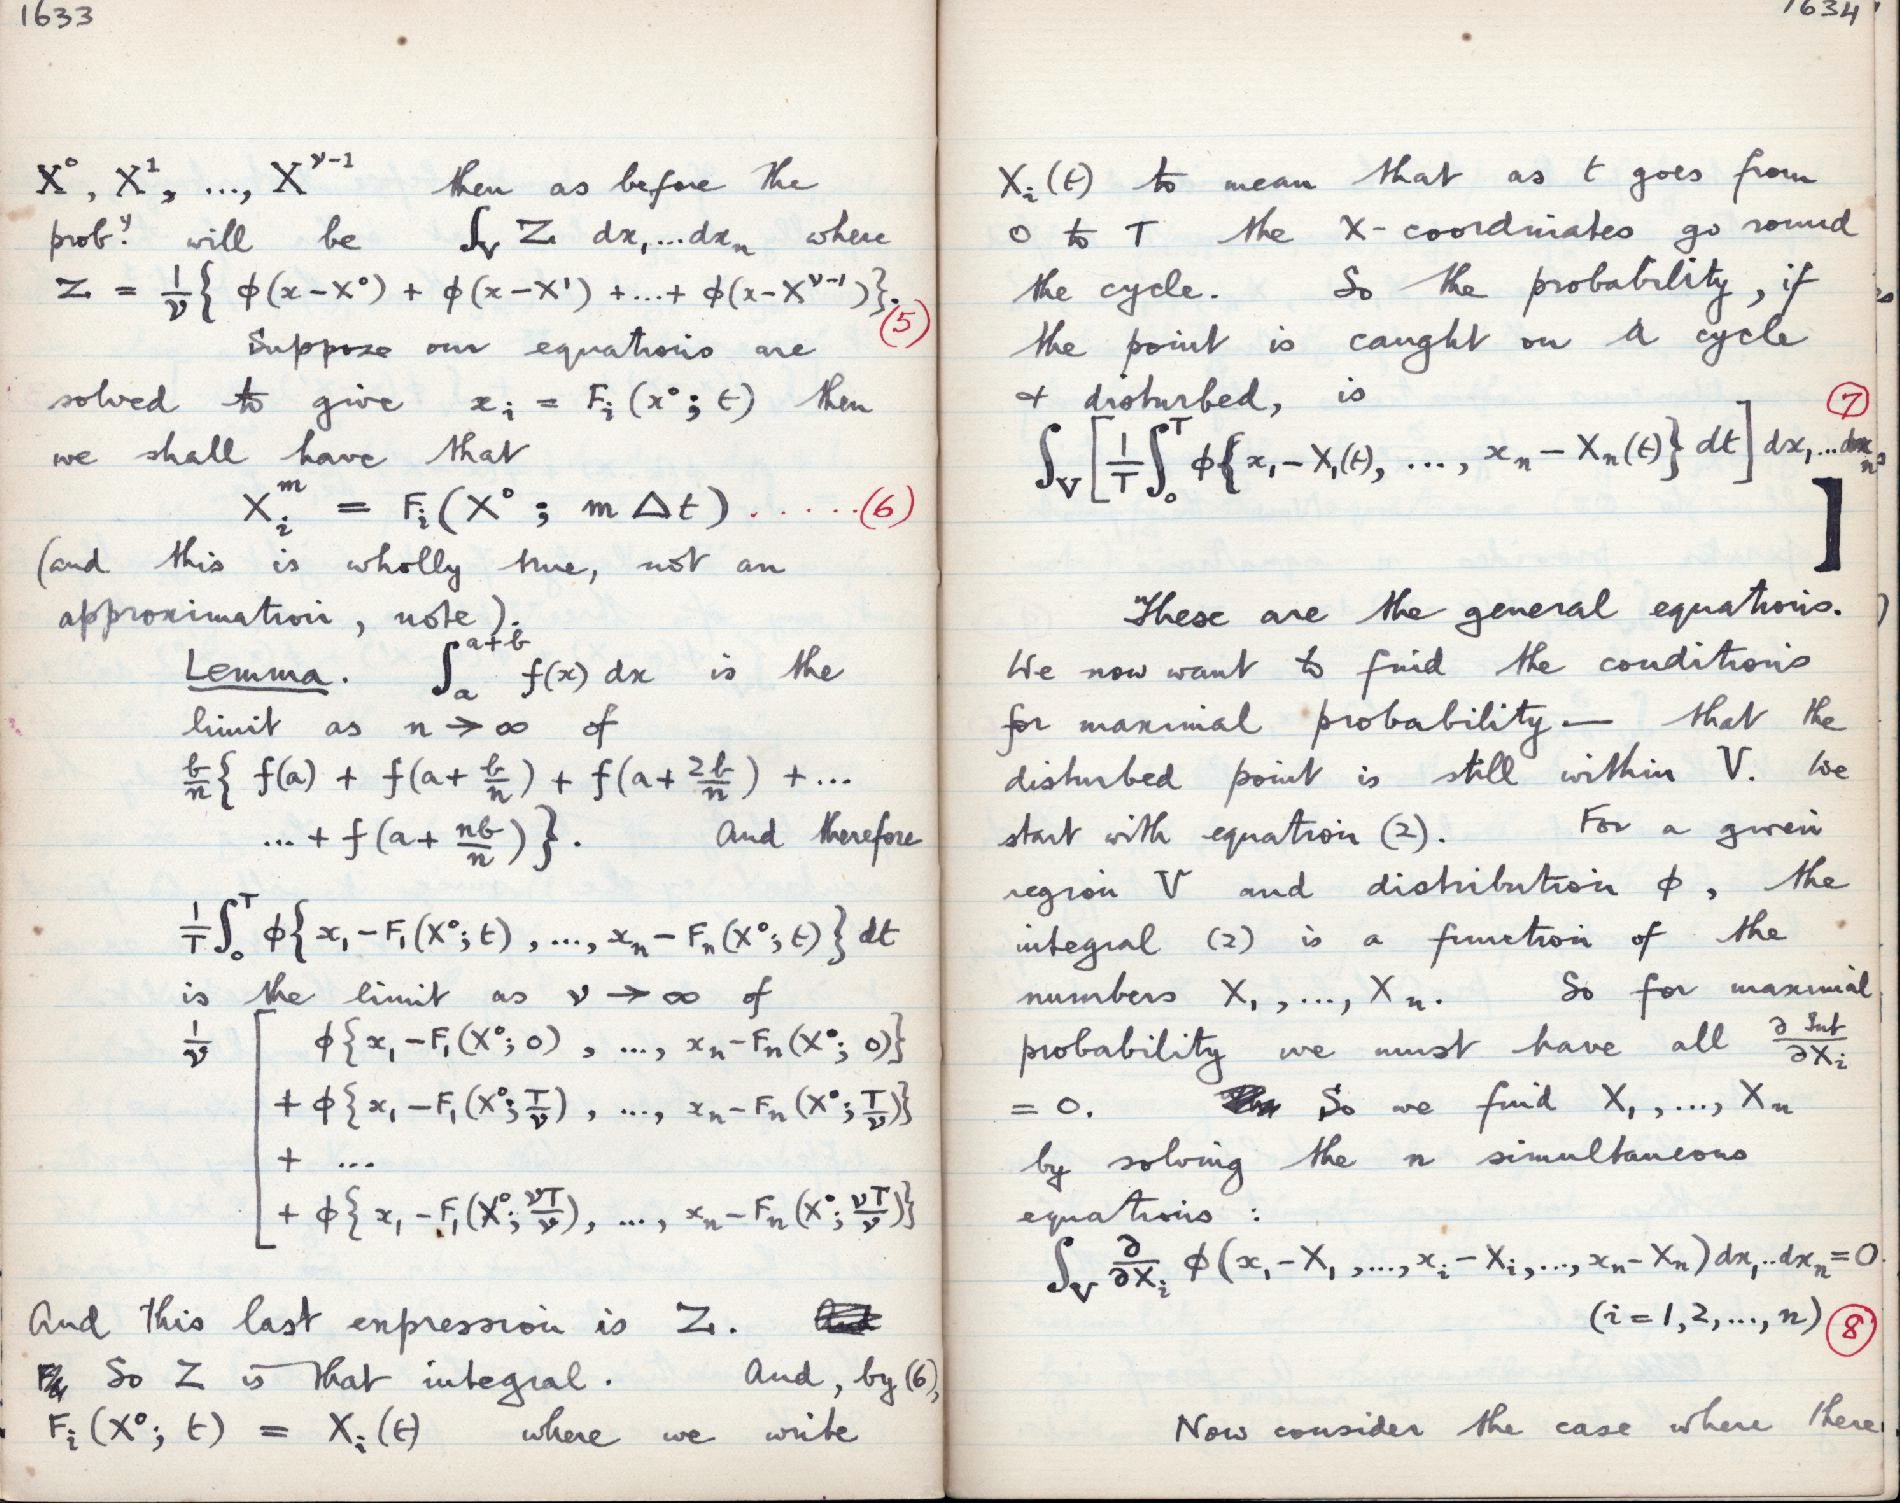 1633
X⁰, X¹, ..., X^(ν-1) then as before the
prob.y will be ∫_V Z dx₁...dxₙ where
Z = 1/ν { φ(x-X⁰) + φ(x-X¹) + ... + φ(x-X^(ν-1)) }. (5)
Suppose our equations are
solved to give xᵢ = Fᵢ(x⁰; t) then
we shall have that
Xᵢᵐ = Fᵢ(X⁰; m Δt) . . . . . . (6)
(and this is wholly true, not an
approximation, note).
Lemma. ∫ₐ^(a+b) f(x) dx is the
limit as n → ∞ of
b/n { f(a) + f(a + b/n) + f(a + 2b/n) + ...
... + f(a + nb/n) }. And therefore
1/T ∫₀^T φ{ x₁ - F₁(X⁰; t), ..., xₙ - Fₙ(X⁰; t) } dt
is the limit as ν → ∞ of
1/ν [ φ{ x₁ - F₁(X⁰; 0), ..., xₙ - Fₙ(X⁰; 0) }
+ φ{ x₁ - F₁(X⁰; T/ν), ..., xₙ - Fₙ(X⁰; T/ν) }
+ ...
+ φ{ x₁ - F₁(X⁰; νT/ν), ..., xₙ - Fₙ(X⁰; νT/ν) }
And this last expression is Z.
So Z is that integral. And, by (6),
Fᵢ(X⁰; t) = Xᵢ(t) where we write
1634
Xᵢ(t) to mean that as t goes from
0 to T the X-coordinates go round
the cycle. So the probability, if
the point is caught on a cycle
& disturbed, is (7)
∫_V [ 1/T ∫₀^T φ{ x₁ - X₁(t), ..., xₙ - Xₙ(t) } dt ] dx₁...dxₙ
]
These are the general equations.
We now want to find the conditions
for maximal probability — that the
disturbed point is still within V. We
start with equation (2). For a given
region V and distribution φ, the
integral (2) is a function of the
numbers X₁, ..., Xₙ. So for maximal
probability we must have all ∂ Int/∂Xᵢ
= 0. So we find X₁, ..., Xₙ
by solving the n simultaneous
equations :
∫_V ∂/∂Xᵢ φ(x₁ - X₁, ..., xᵢ - Xᵢ, ..., xₙ - Xₙ) dx₁...dxₙ = 0
(i = 1, 2, ..., n) (8)
Now consider the case where there